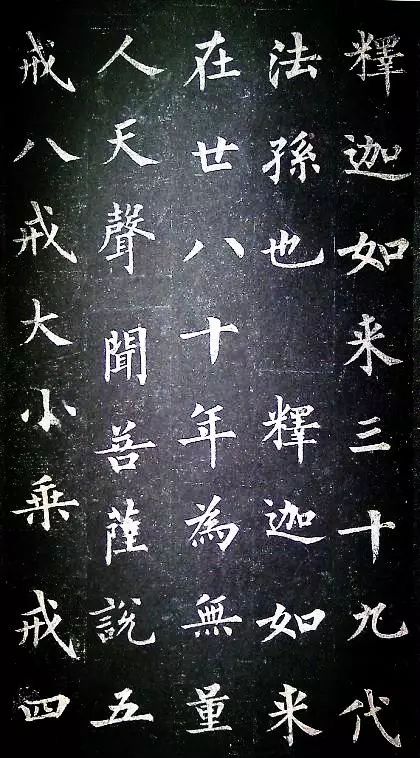 釋迦如来三十九代
法孫也 釋迦如来
在世八十年為無量
人天聲聞菩薩說五
戒八戒大小乘戒四